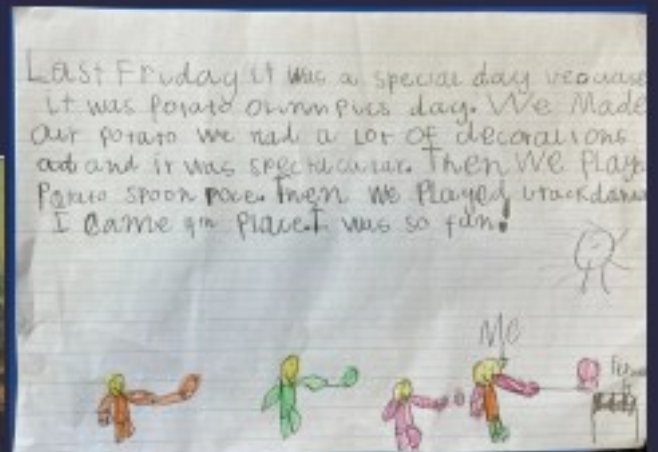 Last Friday it was a special day becuase
it was Potato Olympics day. We Made
our potato we had a lot of decorations
and it was spectacular. Then We Play
Potato spoon race. Then we Played
I came 4th Place. I was so fun!
Me